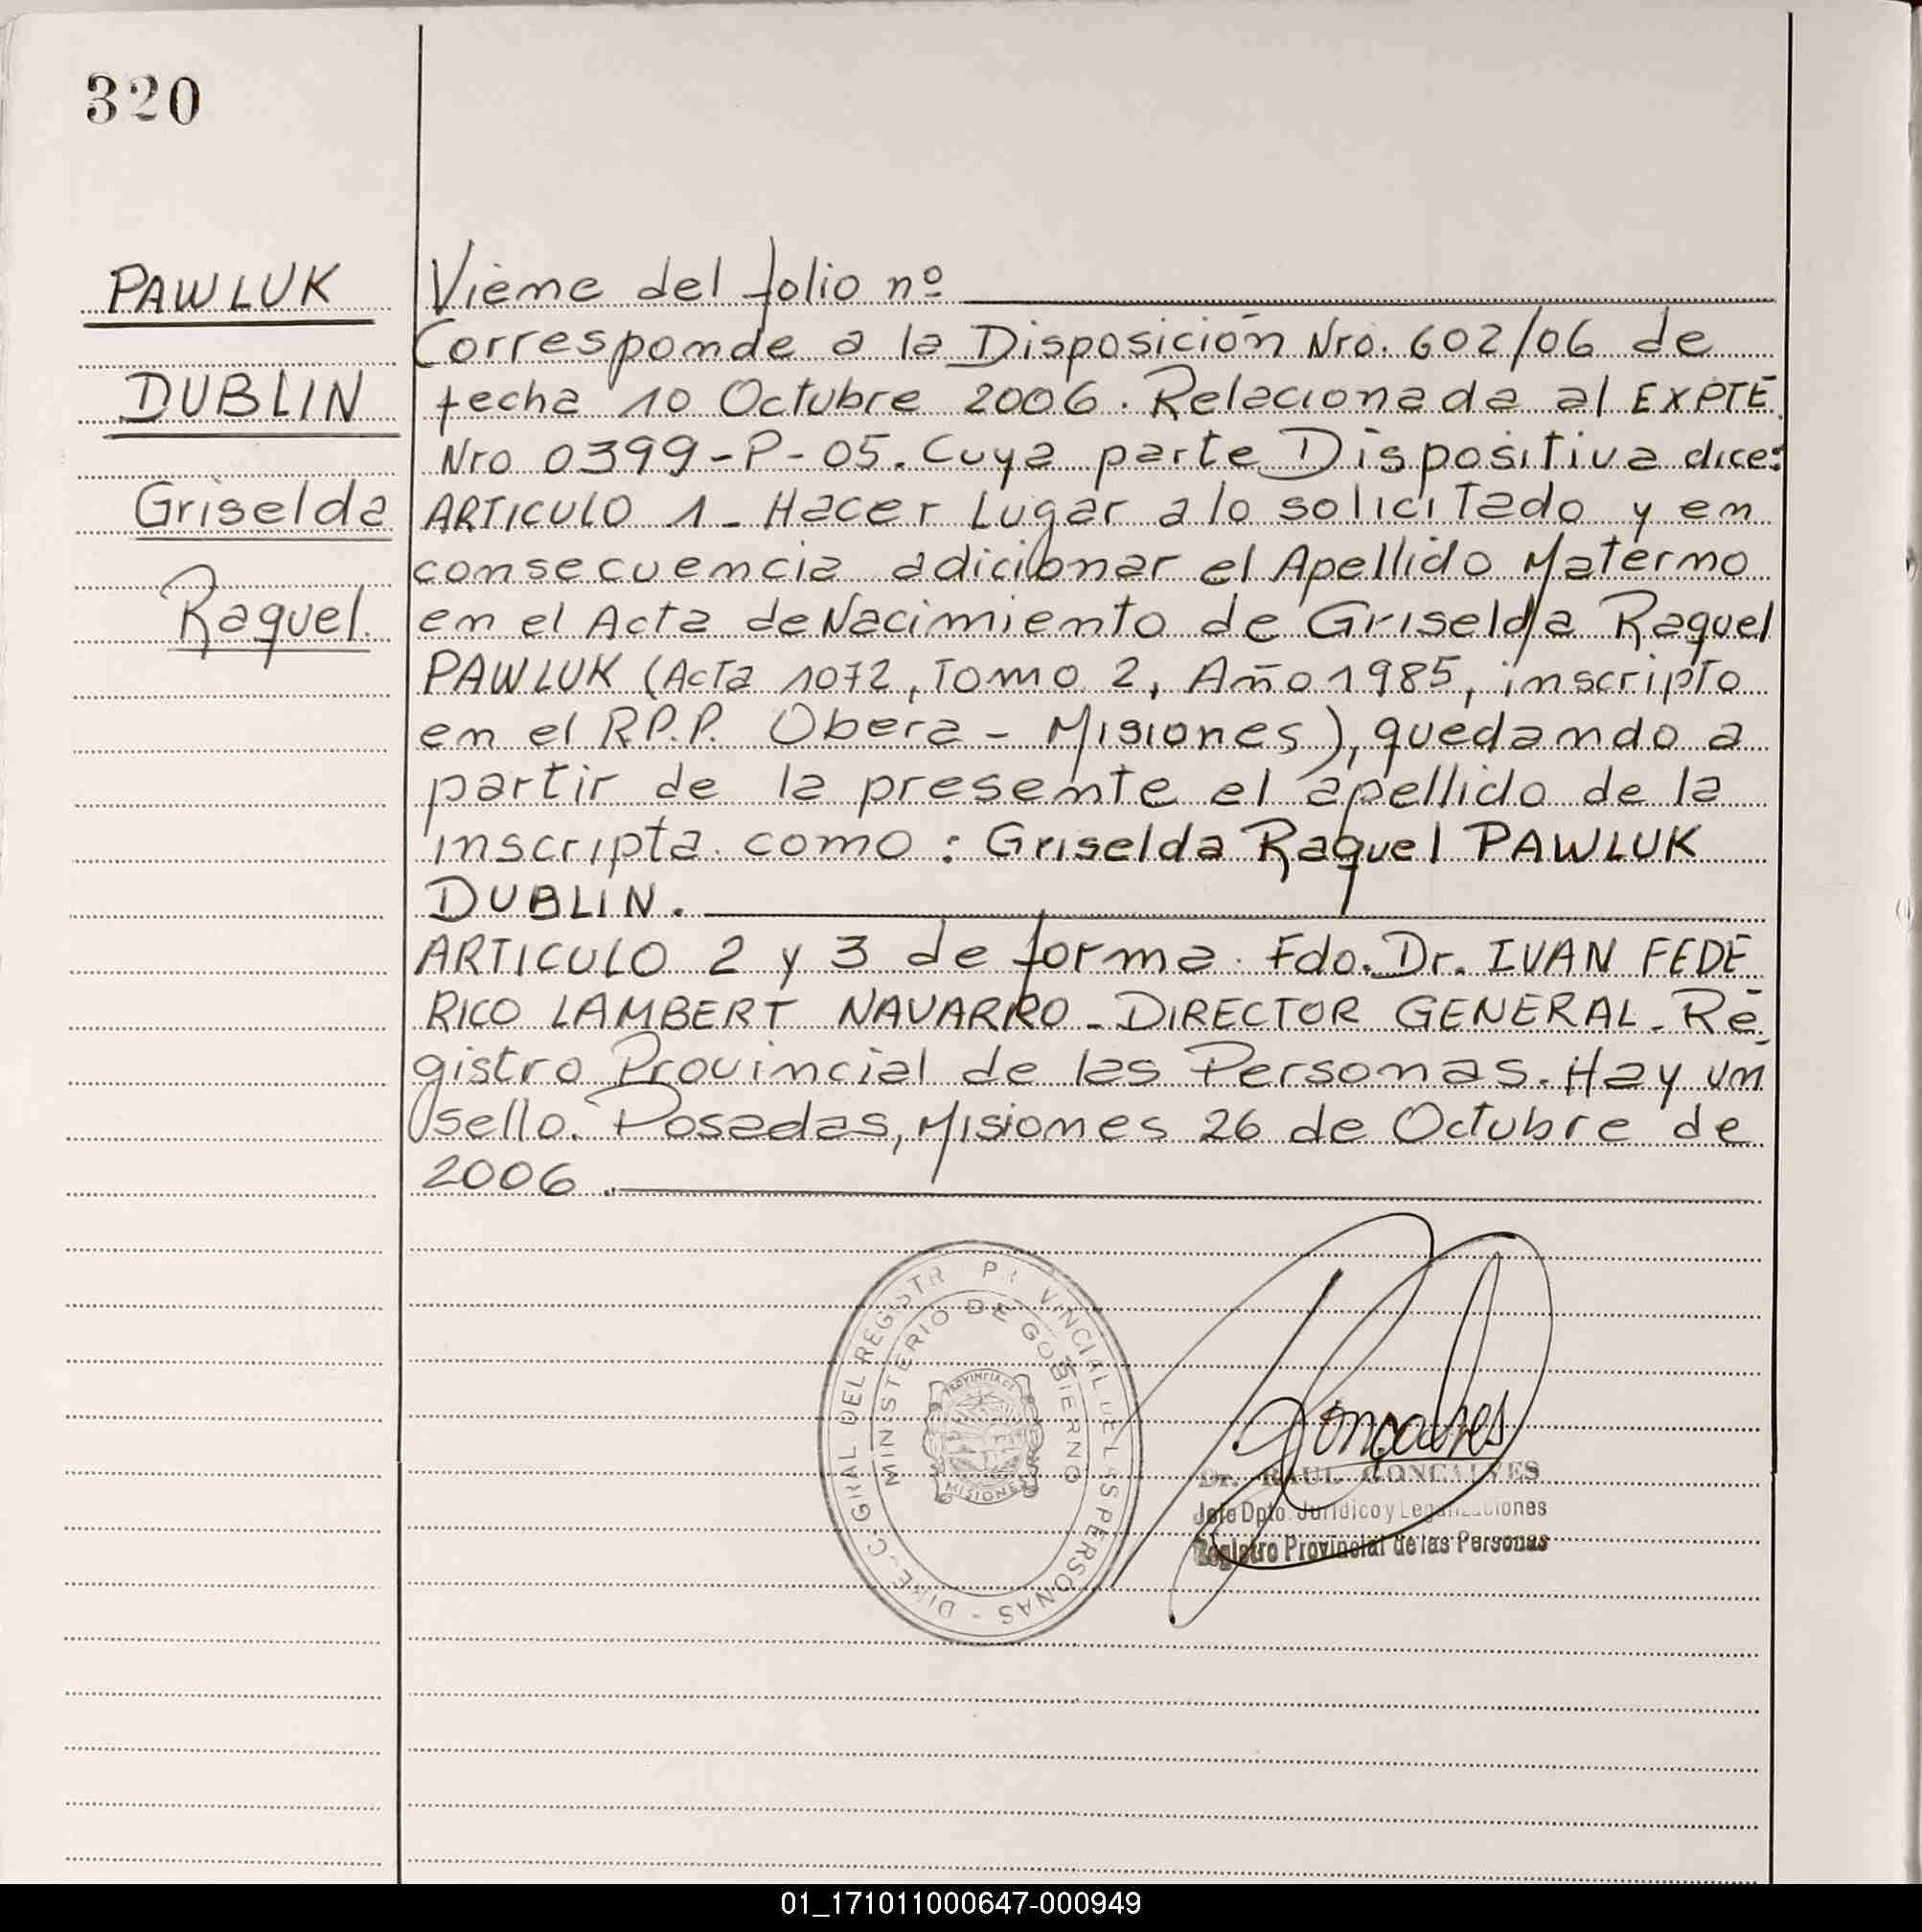 320
PAWLUK
DUBLIN
Griselda
Raquel.
Viene del folio nº
Corresponde a la Disposición Nro. 602/06 de
fecha 10 Octubre 2006. Relacionada al EXPTE.
Nro 0399-P-05. Cuya parte Dispositiva dice:
ARTICULO 1_ Hacer Lugar a lo solicitado y en
consecuencia adicionar el Apellido Materno
en el Acta de Nacimiento de Griselda Raquel
PAWLUK (Acta 1072, Tomo 2, Año 1985, inscripto
en el R.P.P. Obera - Misiones), quedando a
partir de la presente el apellido de la
inscripta como: Griselda Raquel PAWLUK
DUBLIN.
ARTICULO 2 y 3 de forma. Fdo. Dr. IVAN FEDE
RICO LAMBERT NAVARRO_ DIRECTOR GENERAL_ Re
gistro Provincial de las Personas. Hay un
sello. Posadas, Misiones 26 de Octubre de
2006.
DIREC. GRAL DEL REGISTR PR VINCIAL DE LAS PERSONAS -
MINISTERIO DE GOBIERNO
PROVINCIA DE
MISIONES
Gonçalves
Dr. RAUL GONCALVES
Jefe Dpto. Jurídico y Legalizaciones
Registro Provincial de las Personas
01_171011000647-000949